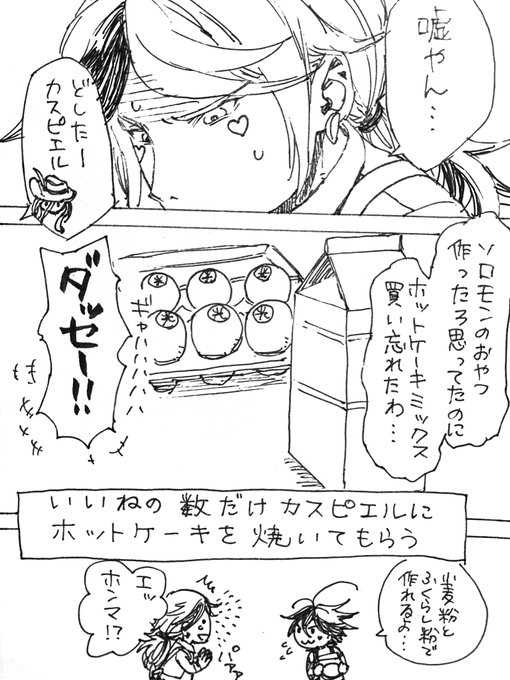 嘘やん…
どしたー
カスピエル
ソロモンのおやつ
作ったろ思ってたのに
ホットケーキミックス
買い忘れたわ…
ギャハハハハ
ダッセー!!
いいねの数だけカスピエルに
ホットケーキを焼いてもらう
小麦粉と
ふくらし粉で
作れるよ…
エッ
ホンマ!?
パァァ